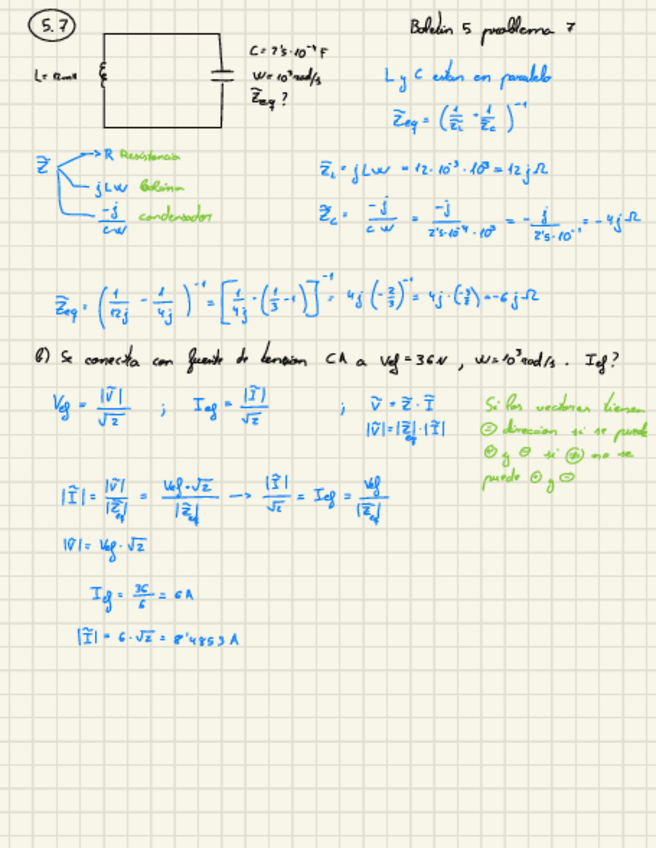 5.7
Boletin 5 problema 7
L = 12mH
C = 2's·10⁻⁴ F
W = 10³ rad/s
Z̃eq ?
L y C estan en paralelo
Z̃eq = (1/Z̃L + 1/Z̃C)⁻¹
Z̃
→ R Resistencia
jLW Bobina
-j/CW condensador
Z̃L = jLW = 12·10⁻³·10³ = 12jΩ
Z̃C = -j/CW = -j/2's·10⁻⁴·10³ = -j/2's·10⁻¹ = -4jΩ
Z̃eq = (1/12j - 1/4j)⁻¹ = [1/4j·(1/3-1)]⁻¹ = 4j(-2/3)⁻¹ = 4j·(-3/2) = -6jΩ
b) Se conecta con fuente de tension CA a Vef = 36V, W=10³rad/s. Ief?
Vef = |Ṽ|/√2 ; Ief = |Ĩ|/√2 ; Ṽ = Z̃·Ĩ
|Ṽ| = |Z̃eq|·|Ĩ|
Si los vectores tienen
= direccion si se puede
+ y - si ≠ no se
puede + y -
|Ĩ| = |Ṽ|/|Z̃eq| = Vef·√2/|Z̃eq| → |Ĩ|/√2 = Ief = Vef/|Z̃eq|
|Ṽ| = Vef·√2
Ief = 36/6 = 6A
|Ĩ| = 6·√2 = 8'4853 A